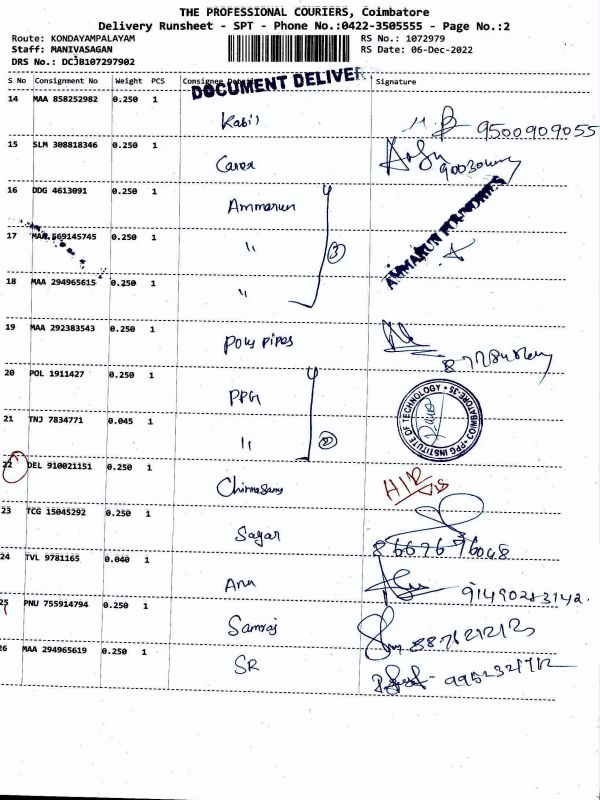 THE PROFESSIONAL COURIERS, Coimbatore
Delivery Runsheet - SPT - Phone No.:0422-3505555 - Page No.:2
Route: KONDAYAMPALAYAM RS No.: 1072979
Staff: MANIVASAGAN RS Date: 06-Dec-2022
DRS No.: DCJB107297902
S No Consignment No Weight PCS Consignee Details Signature
DOCUMENT DELIVER
14 MAA 858252982 0.250 1
Kabil 9500909055
15 SLM 308818346 0.250 1
16 DDG 4613091 0.250 1
Ammarun
17 MAA 569145745 0.250 1
" 3
AMMARUN FOUNDRIES
18 MAA 294965615 0.250 1
"
19 MAA 292383543 0.250 1
Poly pipes
20 POL 1911427 0.250 1
PPG
PPG INSTITUTE OF TECHNOLOGY COIMBATORE-35
21 TNJ 7834771 0.045 1
" 2
22 DEL 910021151 0.250 1
23 TCG 15045292 0.250 1
Sagar 8667676048
24 TVL 9781165 0.040 1
25 PNU 755914794 0.250 1
Samraj
26 MAA 294965619 0.250 1
SR